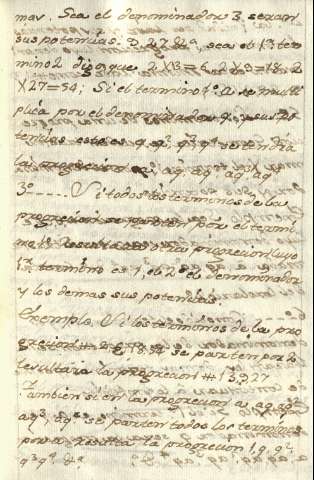 mar. Sea el denominador 3, seran
sus potencias 9, 27 &ª, sea el 1º ter-
mino 2 digo que 2X3=6 2X9=18, 2
X27=54; Si el termino 1º a se multi
plica por el denominador q, y sus po
tencias esto es q, q², q³, q⁴ se tendrá
la progresion a, aq, aq², aq³, aq⁴
3º Si todos los terminos de la
progresion se parten por el termi
no 1º resultará una progresion cuyo
1º termino es 1, el 2º el denominador
y los demas sus potencias.
Exemplo. Si los terminos de la pro
gresion # 2, 6, 18, 54 se parten por 2
resultara la progresion # 1, 3, 9, 27
Tambien si en la progresion a, aq, aq²
aq³, aq⁴ se parten todos los terminos
por a resulta la progresion 1, q, q²,
q³, q⁴, &ª